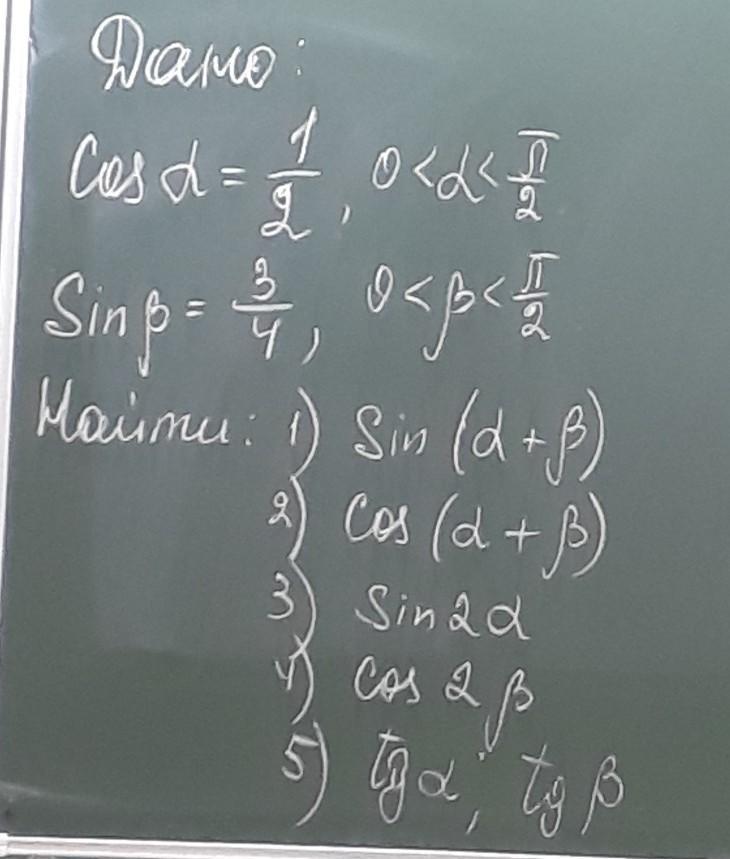 Дано:
Cos α = 1/2, 0 < α < π/2
Sin β = 3/4, 0 < β < π/2
Найти: 1) Sin (α + β)
2) Cos (α + β)
3) Sin 2α
4) Cos 2β
5) tg α, tg β